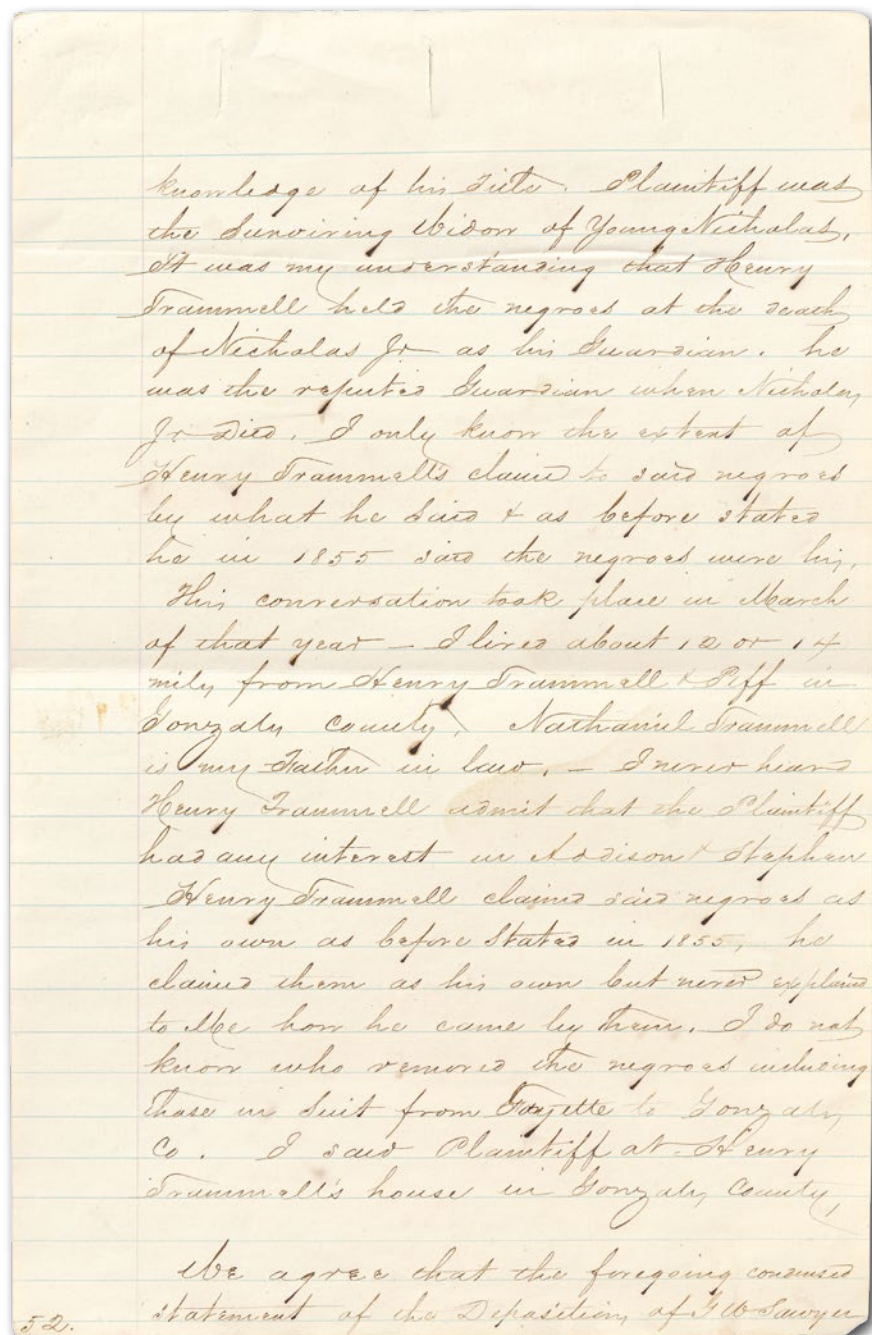 knowledge of his Title. Plaintiff was
the Surviving Widow of Young Nicholas.
It was my understanding that Henry
Trammell held the negroes at the death
of Nicholas Jr as his Guardian. he
was the reputed Guardian when Nicholas
Jr Died. I only know the extent of
Henry Trammell's claim to said negroes
by what he Said & as before stated
he in 1855 said the negroes were his.
This conversation took place in March
of that year — I lived about 12 or 14
miles from Henry Trammell & Plff in
Gonzales County. Nathaniel Trammell
is my Father in law. — I never heard
Henry Trammell admit that the Plaintiff
had any interest in Addison & Stephen
Henry Trammell claimed said negroes as
his own as before Stated in 1855, he
claimed them as his own but never explained
to Me how he came by them. I do not
know who removed the negroes including
those in Suit from Fayette to Gonzales
Co. I saw Plaintiff at Henry
Trammell's house in Gonzales County,
We agree that the foregoing condensed
52. statement of the Deposition of G W Sawyer